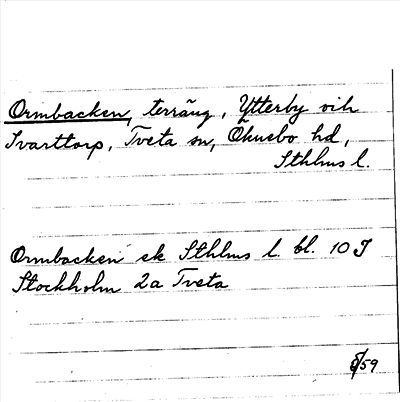 Ormbacken, terräng, Ytterby och
Svarttorp, Tveta sn, Öknebo hd,
Sthlms l.
Ormbacken ek Sthlms l. bl. 10 J
Stockholm 2a Tveta
59